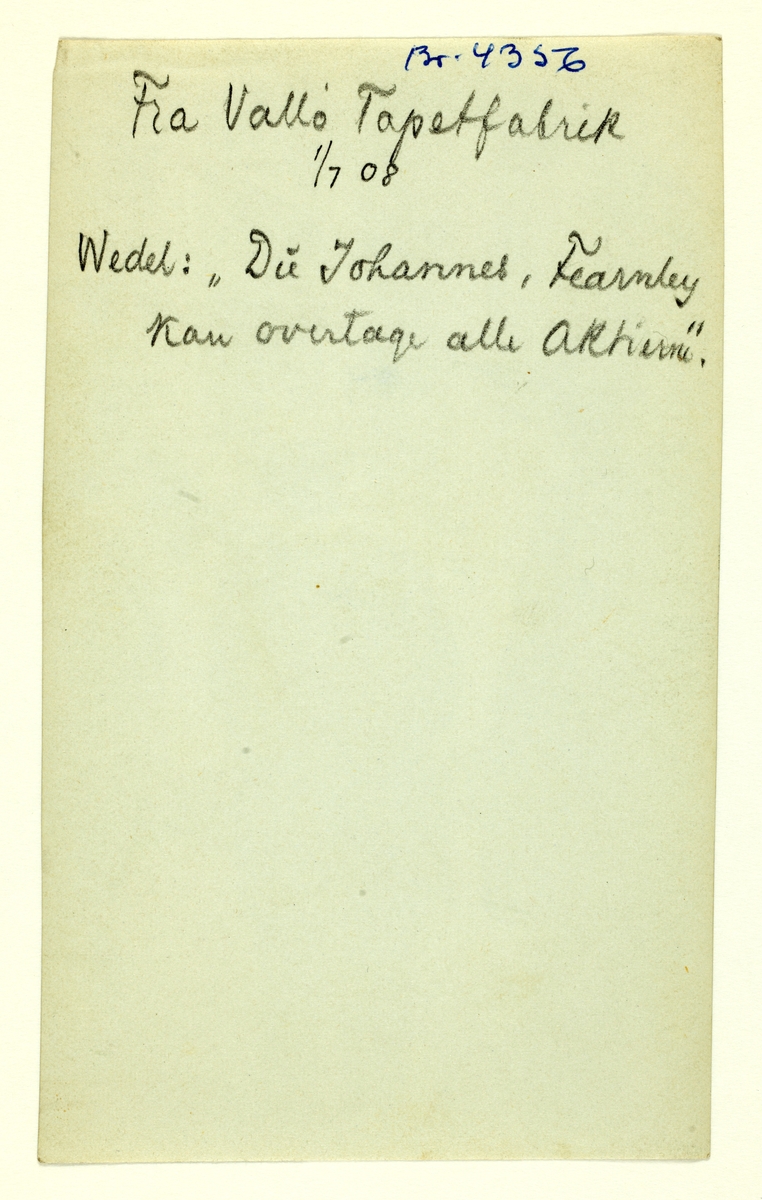 Br. 4356
Fra Vallö Tapetfabrik
1/7 08
Wedel: „Du Johannes, Fearnley
kan overtage alle Aktierne".